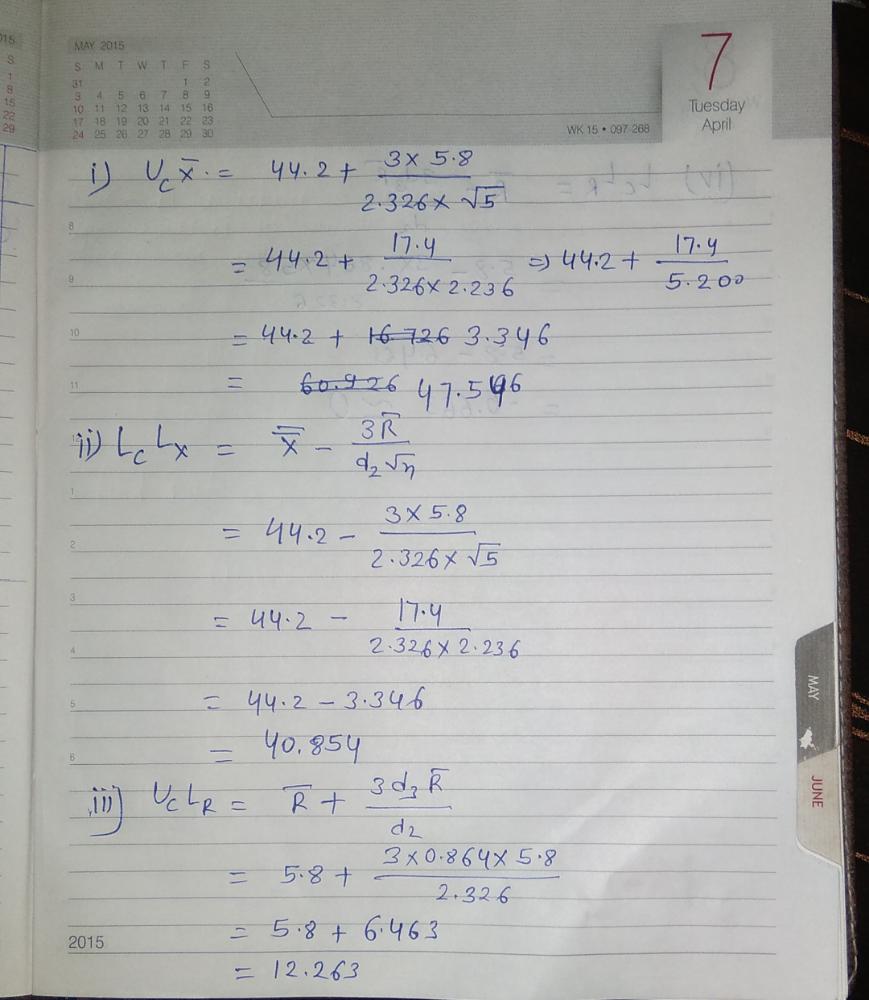 MAY 2015
S M T W T F S
31 1 2
3 4 5 6 7 8 9
10 11 12 13 14 15 16
17 18 19 20 21 22 23
24 25 26 27 28 29 30
7
Tuesday
April
WK 15 • 097-268
i) UC x̄ . = 44.2 + (3 × 5.8)/(2.326 × √5)
= 44.2 + 17.4/(2.326 × 2.236) ⇒ 44.2 + 17.4/5.200
= 44.2 + 16.726 3.346
= 60.926 47.546
ii) LCLX = x̿ − 3R̄/(d2√n)
= 44.2 − (3 × 5.8)/(2.326 × √5)
= 44.2 − 17.4/(2.326 × 2.236)
= 44.2 − 3.346
= 40.854
iii) UCLR = R̄ + 3d3R̄/d2
= 5.8 + (3 × 0.864 × 5.8)/2.326
= 5.8 + 6.463
= 12.263
8
9
10
11
1
2
3
4
5
6
2015
MAY
JUNE
015
S
1
8
15
22
29